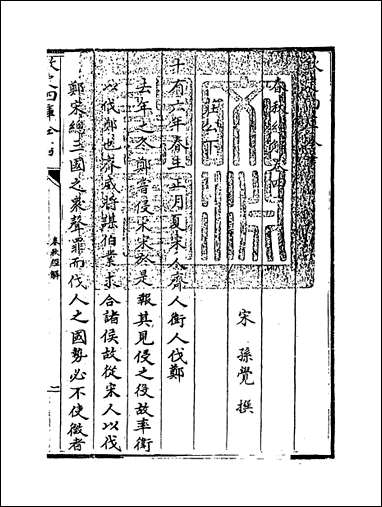 欽定四庫全書
春秋經解卷四
宋 孫覺 撰
莊公下
十有六年春王正月夏宋人齊人衞人伐鄭
去年之冬鄭嘗侵宋宋於是報其見侵之役故率衞
以伐鄭也齊威將謀伯業求合諸侯故從宋人以伐
鄭宋總三國之衆聲罪而伐人之國勢必不使微者
欽定四庫全書
春秋經解